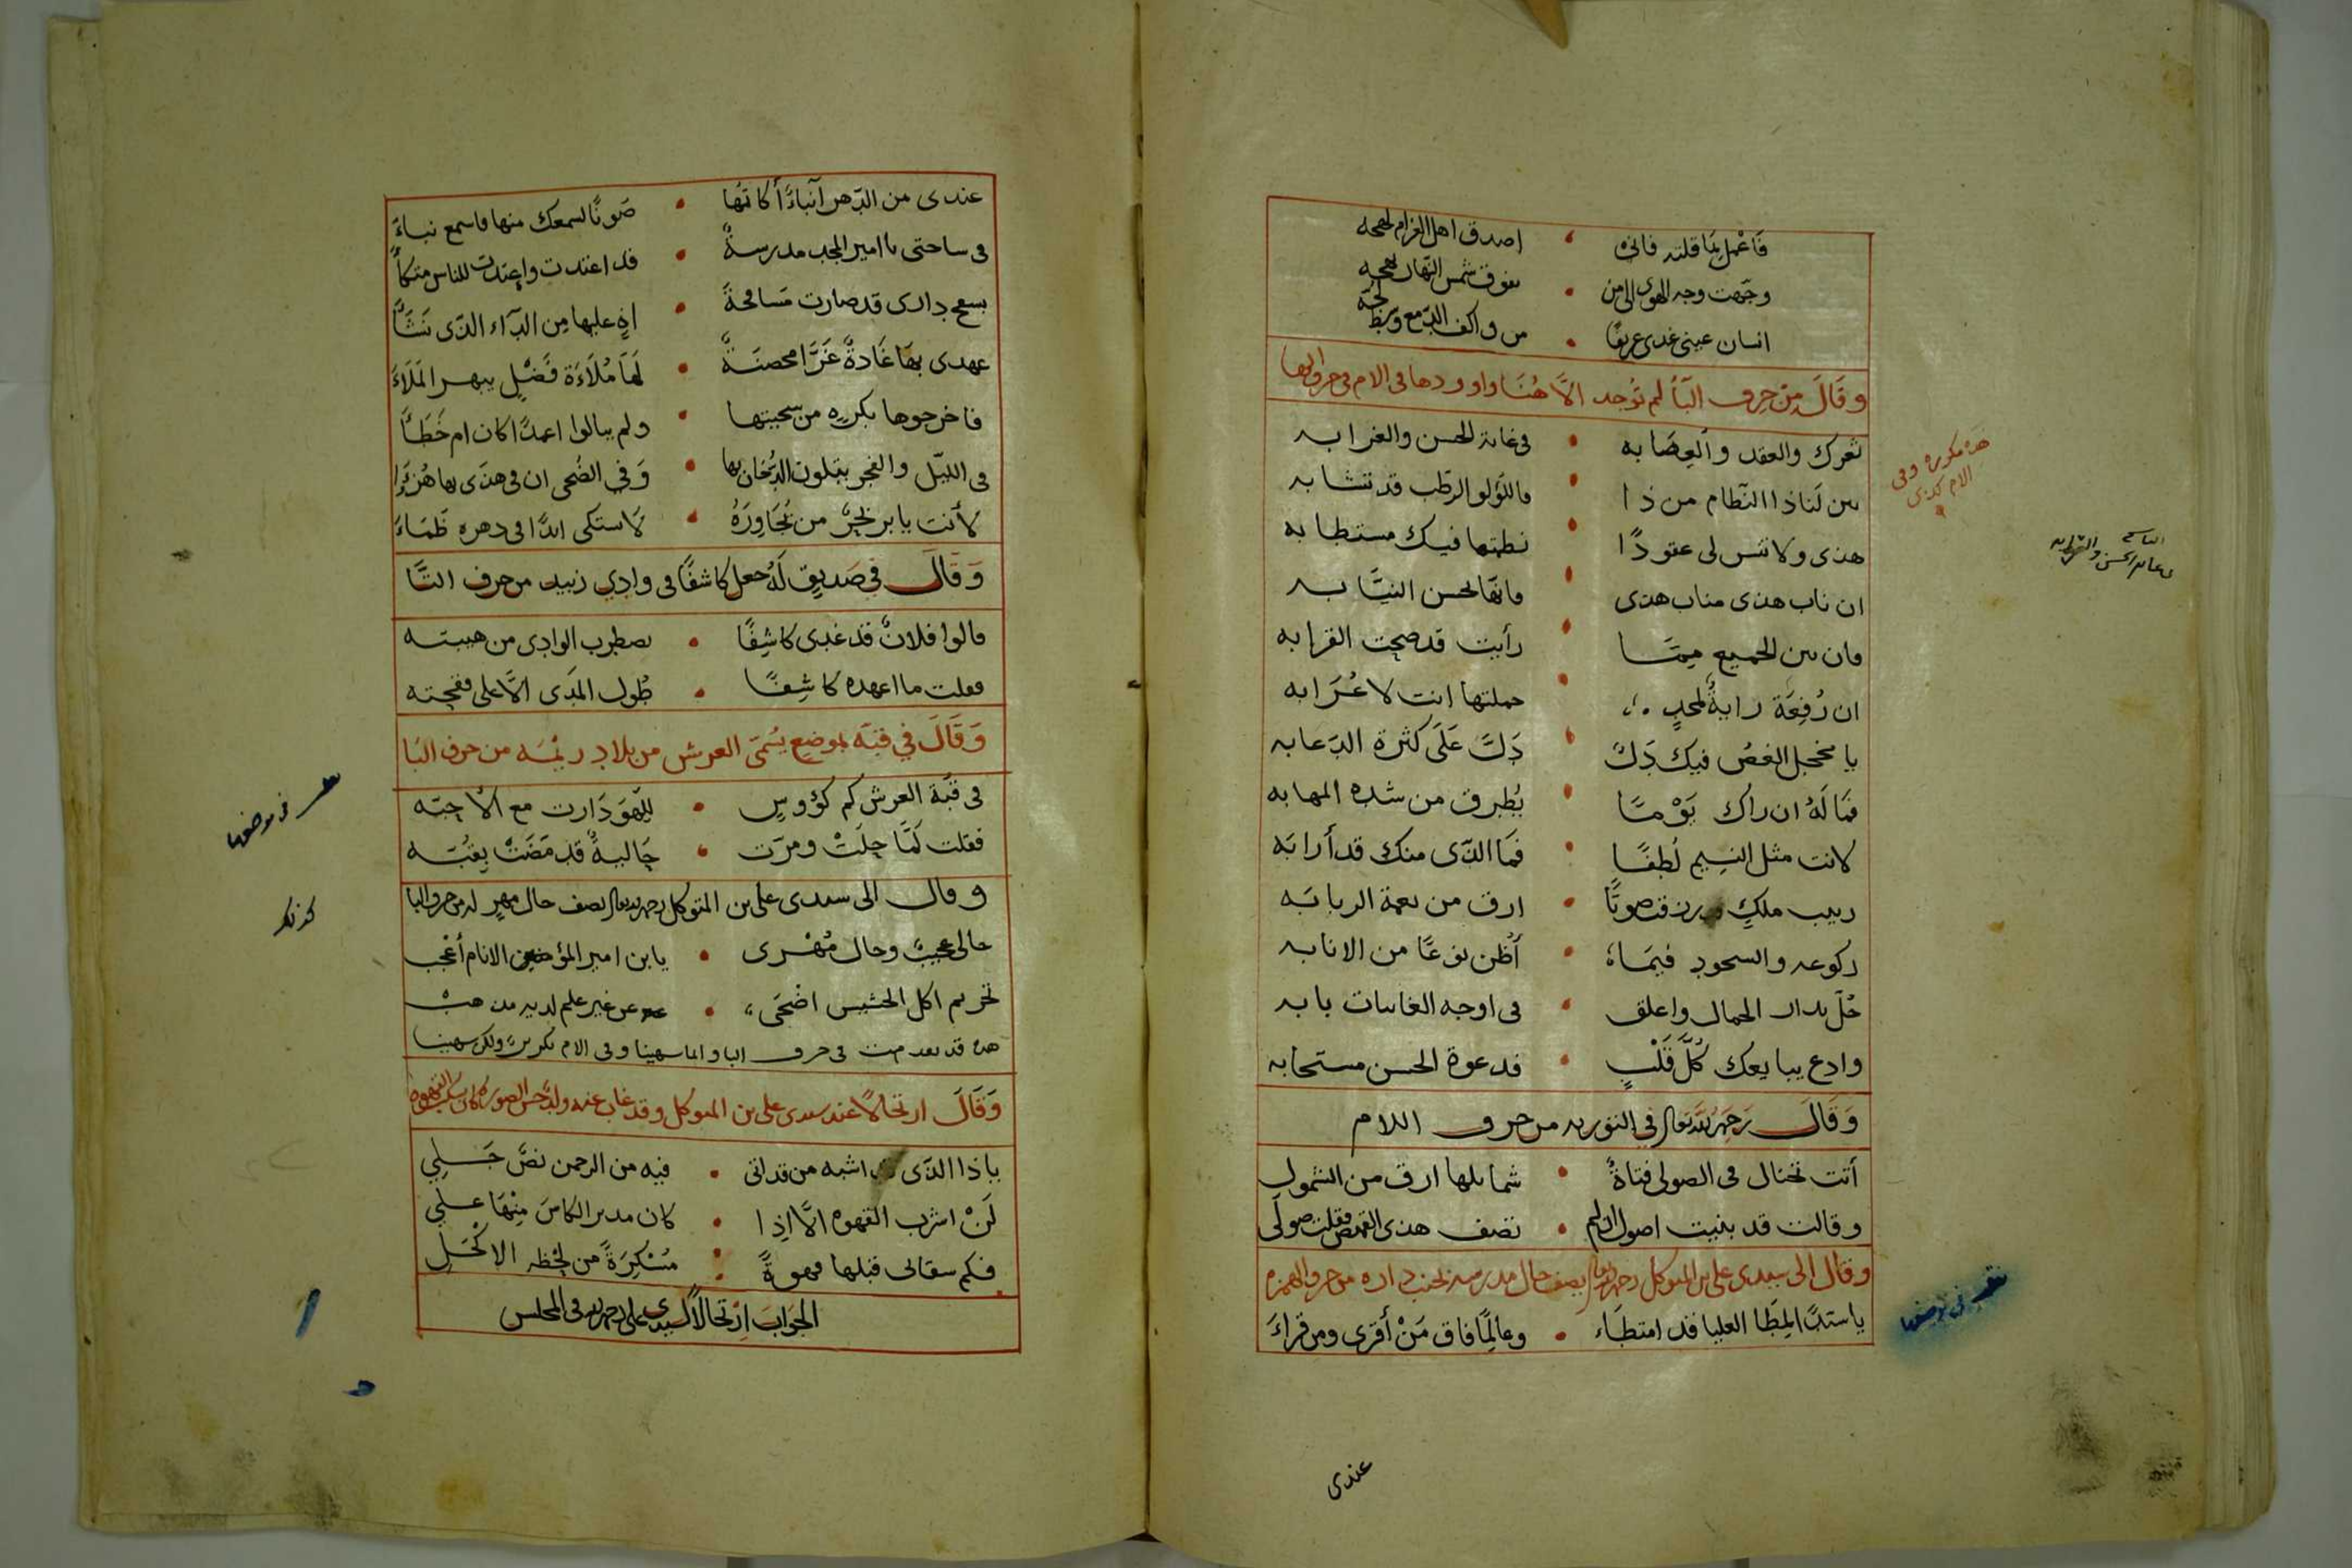 فَاعْمل بمَا قلته فانى • اصدق اهل الغرام لهجه
وجّهت وجه الهوى الى من • يفوق شمس النهار بهجه
انسان عينى غدى غريقًا • من واكف الدّمع وسط لجّه
وقَالَ مِنْ حرف البَأ لم تُوجد الاَّ هُنَا واوردها فى الام فى حرف الها
ثغرك والعقد والعِصَابه • فى غاية الحسن والغرابه
بين لَنا ذا النّظام من ذا • فاللؤلو الرطب قد تشابه
هذى ولا تنس لى عقودًا • نظمتها فيك مستطابه
ان ناب هذى مناب هذى • فانهّا لحسن النيَّابه
فان بين الجميع ميمًا • رأيت قد صحت القرابه
ان رُفِعَة رايةُ لمجدٍ • حملتها انت لا عُرَابه
يا مخجل الغصُن فيك دَلّ • دَلّ عَلَى كثرة الدّعابه
فمَا لَهُ ان راك يَوْمًا • يُطرق من شده المهابه
لانت مثل النسيم لُطفًا • فمَا الذّى منك قد أرابَه
ربيب ملكٍ ورق صوتًا • ارق من نعمة الربابَه
ركوعه والسجود فيمَا • أَظُن نوعًا من الانابه
حُلّ بدار الجمال واعلق • فى اوجه الغانيات بابه
وادع يبايعك كُلَّ قَلْبٍ • فدعوة الحسن مستجابه
هذه مكرره وفى
الام كذى
وَقَالَ رَحمَهُ اللّه تعالى فى التوريه من حرف اللام
أتت تختال فى الصولى فتاةٌ • شمايلها ارق من الشمول
وقالت قد بنيت اصول • تصف هذى القمص فقلت صولى
وقال الى سيدى على بن المتوكل رحمه الله تعالى يصف حال مدرسه بجنب داره من حرف الهمزه
ياسيّدًا لمِطَا العليا قد امتطَاء • وعالِمًا فاق مَنْ أقرى ومن قراءَ
تنقل فى موضعها
عندى
عندى من الدّهر أنباءٌ أكاتمُها • صَونًا لسمعك منها فاسمع نباءَ
فى ساحتى يا امير المجد مدرسةٌ • قد اغتدت واعتدت للناس متكأً
بسفح دارى قد صارت مسَافحةً • اهٍ عليها مِن الدّآء الذّى نَشَأَ
عهدى بهَا غَادةٌ غَرَّا محصنَةٌ • لهَا مُلاَءَة فَضْلٍ يبهر المَلاَءَ
فاخرجوها بكرهٍ من سجيتها • ولم يبالوا اعمدًا كان ام خَطَأَ
فى الليّل والفجر يتلون الدُخان بها • وَفى الضُحى ان فى هذَى بها هُزُءًا
لأنت يا بر بحرٌ من يُجَاوِرَهُ • لاَ اشتكى ابدًا فى دهره ظَمَاءَ
وَقَالَ فى صَديقٍ لَهُ جعل كاشفًا فى وادِي زبيد من حرف التَّا
قالوا فلانٌ قد غدى كاشِفًا • يضطرب الوادِى من هيبته
فقلت ما اعهده كاشِفًا • طُول المَدَى الاَّ على فقحته
وَقَالَ فى قبَّه بموضعٍ يسُمىَ العرش من بلاد ريْمَه من حرف البَا
فى قبَّة العرش كم كؤوسٍ • للّهو دَارت مع الاحبّه
فقلت لمَّا حلَتْ ومرّت • جَاليةٌ قد مَضَتْ بقبُّه
تنقل فى موضعها
كذلك
وقال الى سيدى على بن المتوكل رحمه الله تعالى يصف حال مهرٍ له من حرف البا
حالى عجيبٌ وحال مُهْرى • يا بن امير المؤمنين الانام أعجب
تحريم اكل الحشيش اضحَى • عن غير علم لديه مذهبْ
هذه قد تعدمت فى حرف البا وانما سهينا وفى الام تكررت ولكن سهينا
وَقَالَ ارتجالاً عند سيدى على بن المتوكل وقد غاب عنه ولدٌ حسن الصوره كان يسكب القهوه
يا ذا الذّى اشبه من قد اتى • فيه من الرحمن نصّ جَلِي
لَنْ اشرب القهوه الاَّ اذِا • كان مدير الكاسَ مِنْهَا علي
فكم سقانى قبلها قهوةً • مُسْكِرَةً من لحْظه الاكْحَلِ
الجوَابَ اِرْتجَالاً لسيّدى على رحمه الله فى المجلس